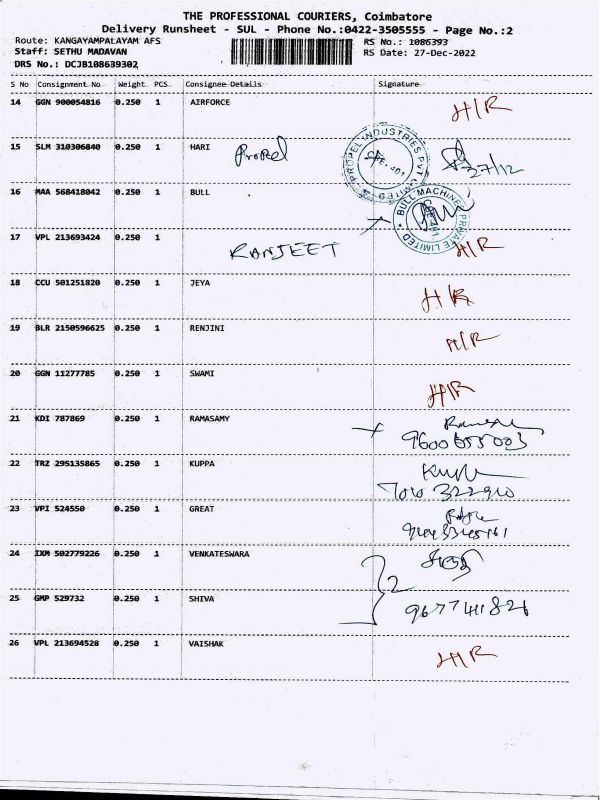 THE PROFESSIONAL COURIERS, Coimbatore
Delivery Runsheet - SUL - Phone No.:0422-3505555 - Page No.:2
Route: KANGAYAMPALAYAM AFS RS No.: 1086393
Staff: SETHU MADAVAN RS Date: 27-Dec-2022
DRS No.: DCJB108639302
S No Consignment No Weight PCS Consignee Details Signature
14 GGN 900054816 0.250 1 AIRFORCE H/R
15 SLM 310306840 0.250 1 HARI Propel PROPEL INDUSTRIES PVT LIMITED 27/12
16 MAA 568418042 0.250 1 BULL BULL MACHINES PRIVATE LIMITED
17 VPL 213693424 0.250 1 RANJEET H/R
18 CCU 501251820 0.250 1 JEYA H/R
19 BLR 2150596625 0.250 1 RENJINI H/R
20 GGN 11277785 0.250 1 SWAMI H/R
21 KDI 787869 0.250 1 RAMASAMY
22 TRZ 295135865 0.250 1 KUPPA
7010 322910
23 VPI 524550 0.250 1 GREAT
24 IXM 502779226 0.250 1 VENKATESWARA
2
25 GMP 529732 0.250 1 SHIVA
26 VPL 213694528 0.250 1 VAISHAK H/R